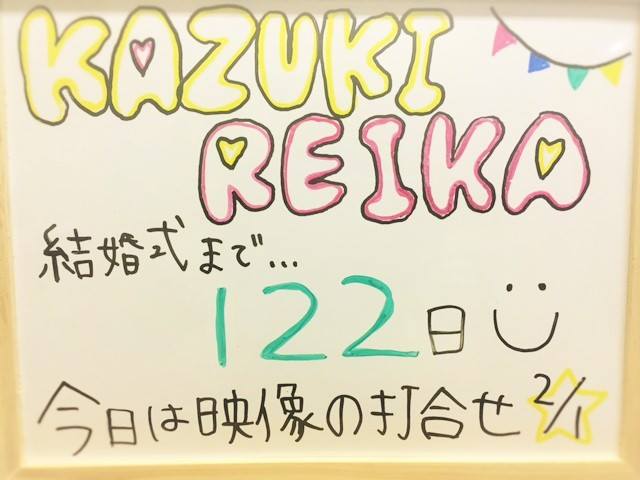 KAZUKI
REIKA
結婚式まで...
122日
今日は映像の打合せ 2/1